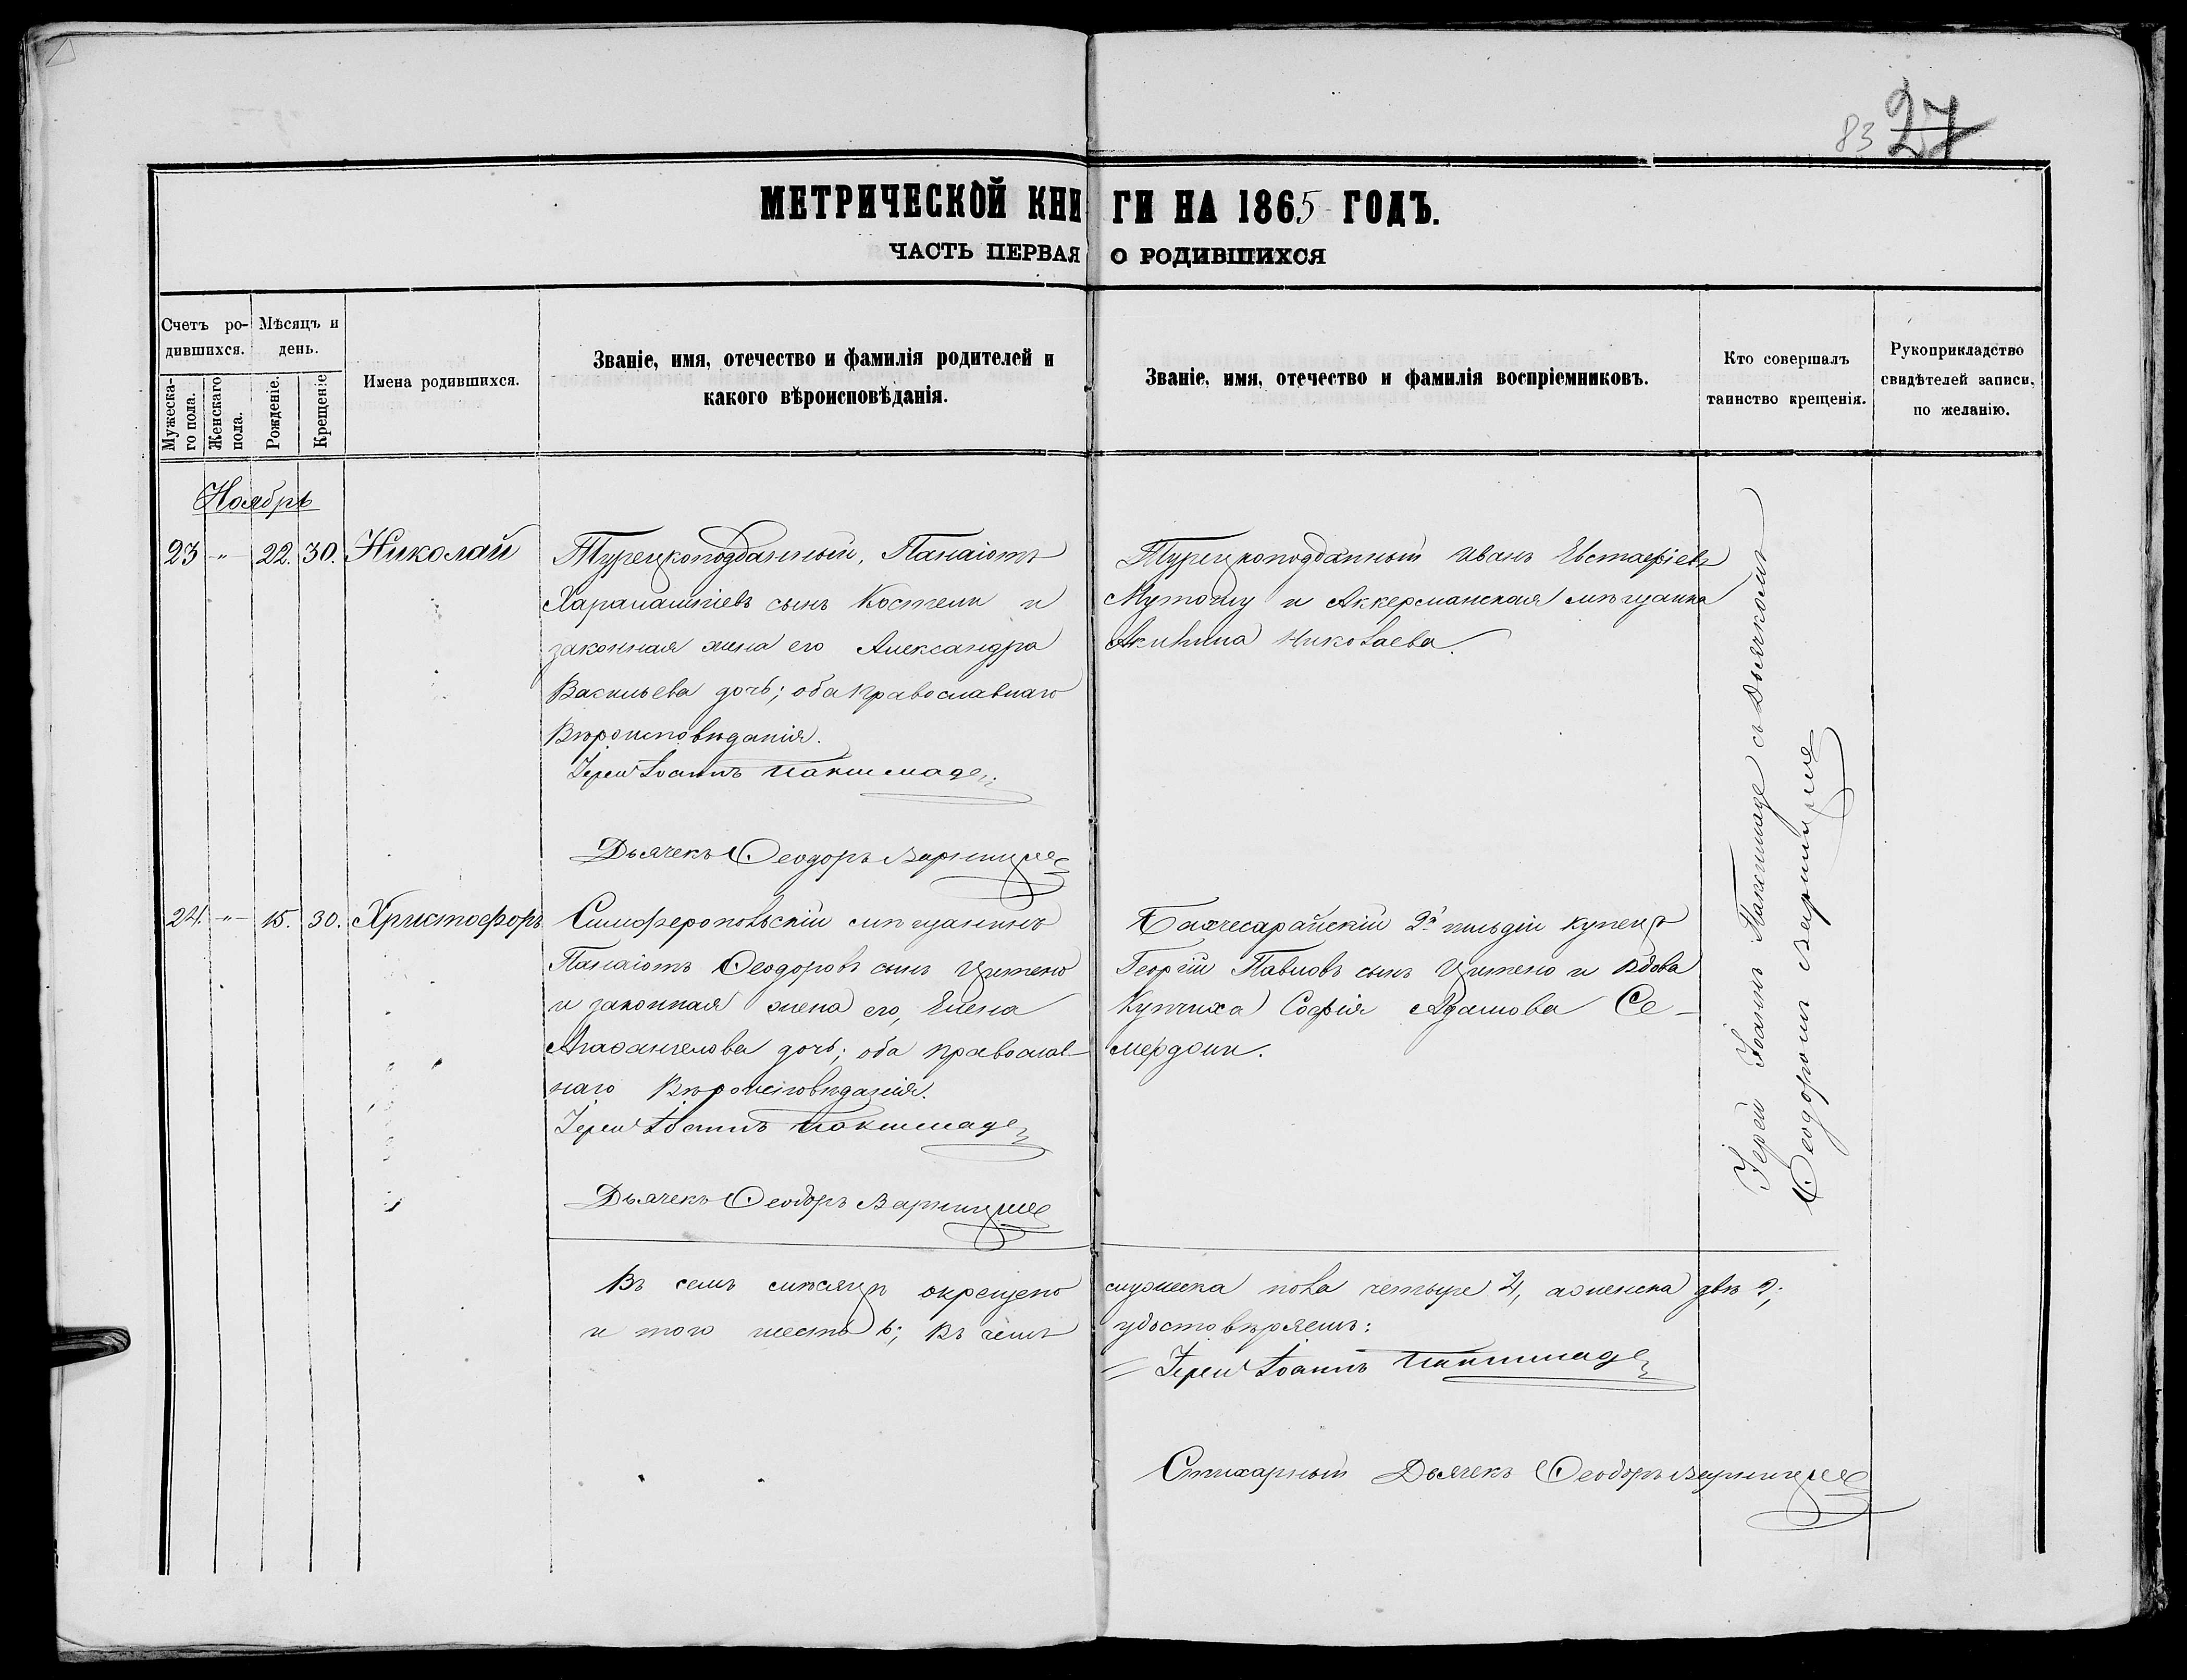 83 27
МЕТРИЧЕСКОЙ КНИГИ НА 1865 ГОДЪ.
ЧАСТЬ ПЕРВАЯ О РОДИВШИХСЯ
Счетъ ро-
дившихся.
Мѣсяцъ и
день.
Мужеска-
го пола.
Женскаго
пола.
Рожденіе.
Крещеніе
Имена родившихся.
Званіе, имя, отечество и фамилія родителей и
какого вѣроисповѣданія.
Званіе, имя, отечество и фамилія воспріемниковъ.
Кто совершалъ
таинство крещенія.
Рукоприкладство
свидѣтелей записи,
по желанію.
Ноябрь
23 " 22. 30. Николай
Турецкоподданный, Панаіотъ
Харалампіевъ сынъ Костели и
законная жена его Александра
Васильева дочь; оба православнаго
Вѣроисповѣданія.
Іерей Іоаннъ Пакшмаде
Дьячекъ Ѳеодоръ
Турецкоподданный Иванъ Евстафіевъ
Мутошу и Аккерманская мѣщанка
Акилина Николаева.
24. " 15. 30. Христофоръ
Симферопольскій мѣщанинъ
Панаіотъ Ѳеодоровъ сынъ Цитено
и законная жена его, Елена
Агаѳангелова дочь; оба православ-
наго Вѣроисповѣданія.
Іерей Іоаннъ Пакшмаде
Дьячекъ Ѳеодоръ
Бахчесарайскій 2й гильдіи купецъ
Георгій Павловъ сынъ Цитено и вдова
Купчиха Софія Адамова Се-
мерджи.
Іерей Іоаннъ Пакшмаде съ Дьячкомъ
Ѳеодоромъ
Въ семъ мѣсяцѣ окрещено мужеска пола четыре 4, а женска двѣ 2;
и того шесть 6; Въ чемъ удостовѣряемъ:
Іерей Іоаннъ Пакшмаде
Стихарный Дьячекъ Ѳеодоръ